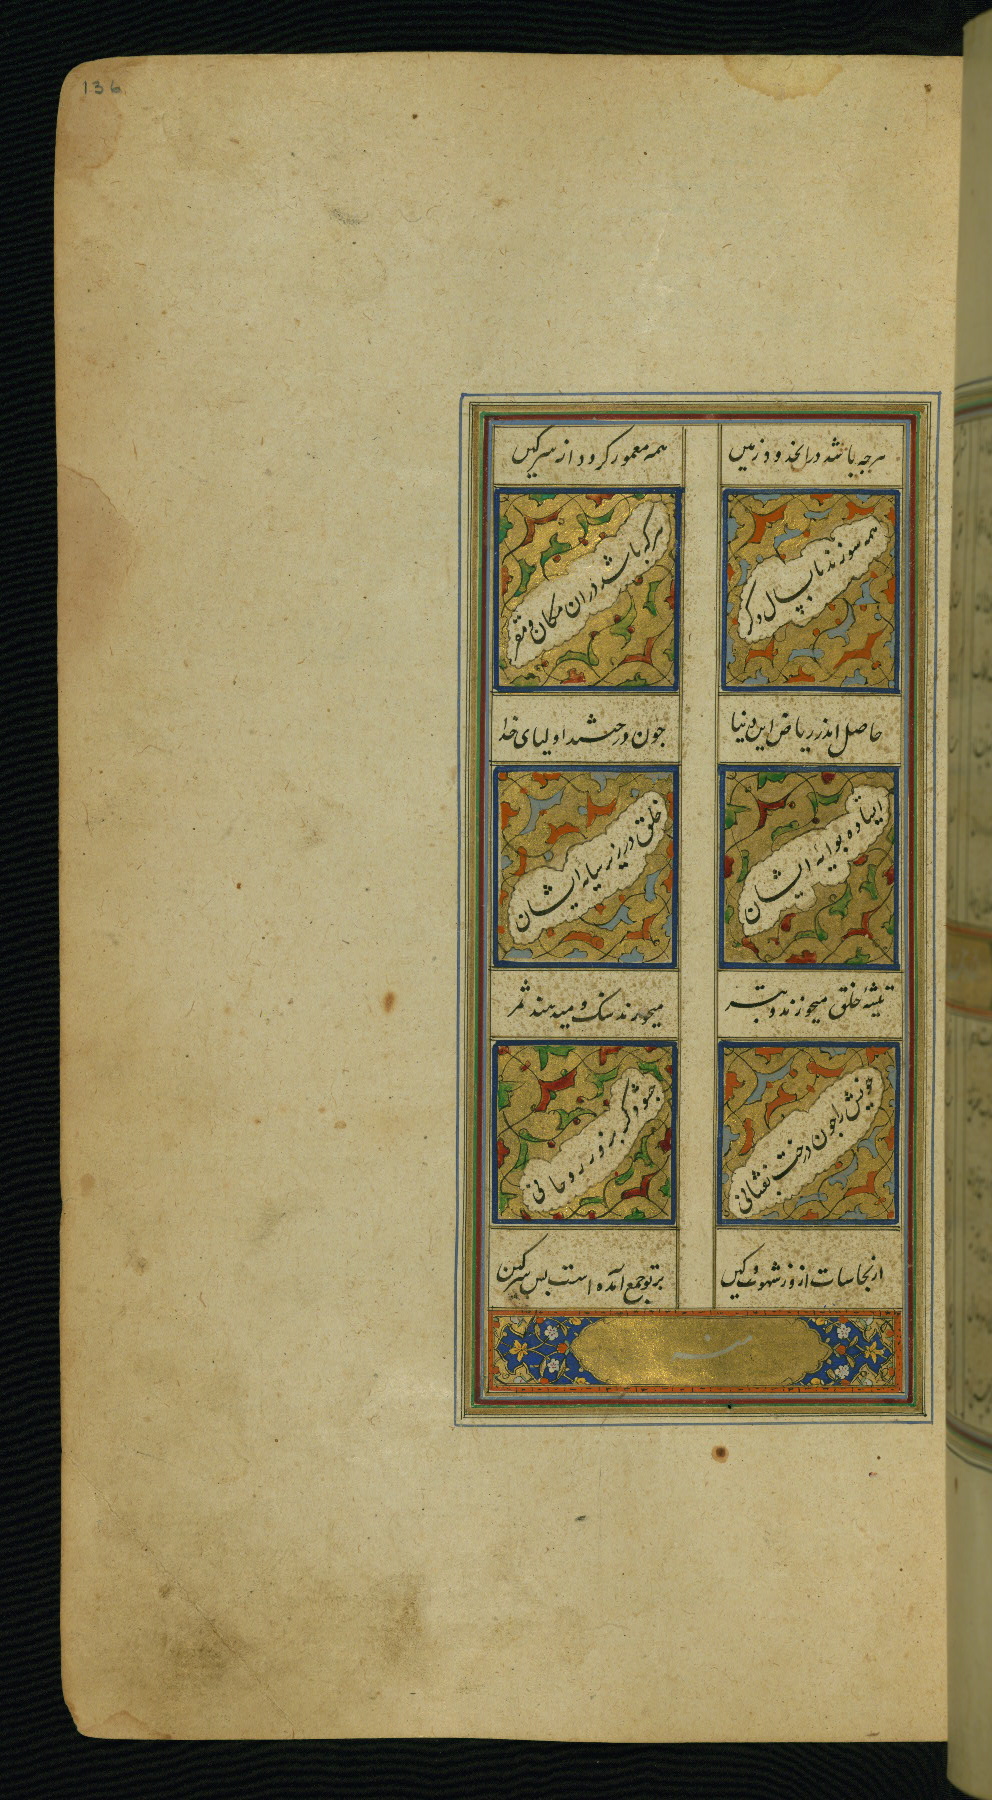 136
هرچه باشد در انحدود زمین
همه معمور کردد از سرکین
همه سوزند تا بسال دکر
هرکه باشد دران مکان و مقر
حاصل اندر ریاض این دنیا
چون درختند اولیای خدا
ایستاده بوایه ایشان
خلق در زیر سایه ایشان
تیشه خلق میخورند و تبر
میخورند سنک و میدهند ثمر
خویش را چون درخت بفشانی
برزور روحانی
از نجاسات از وز شهوت و کین
بر تو جمع آمده است بس سرکین